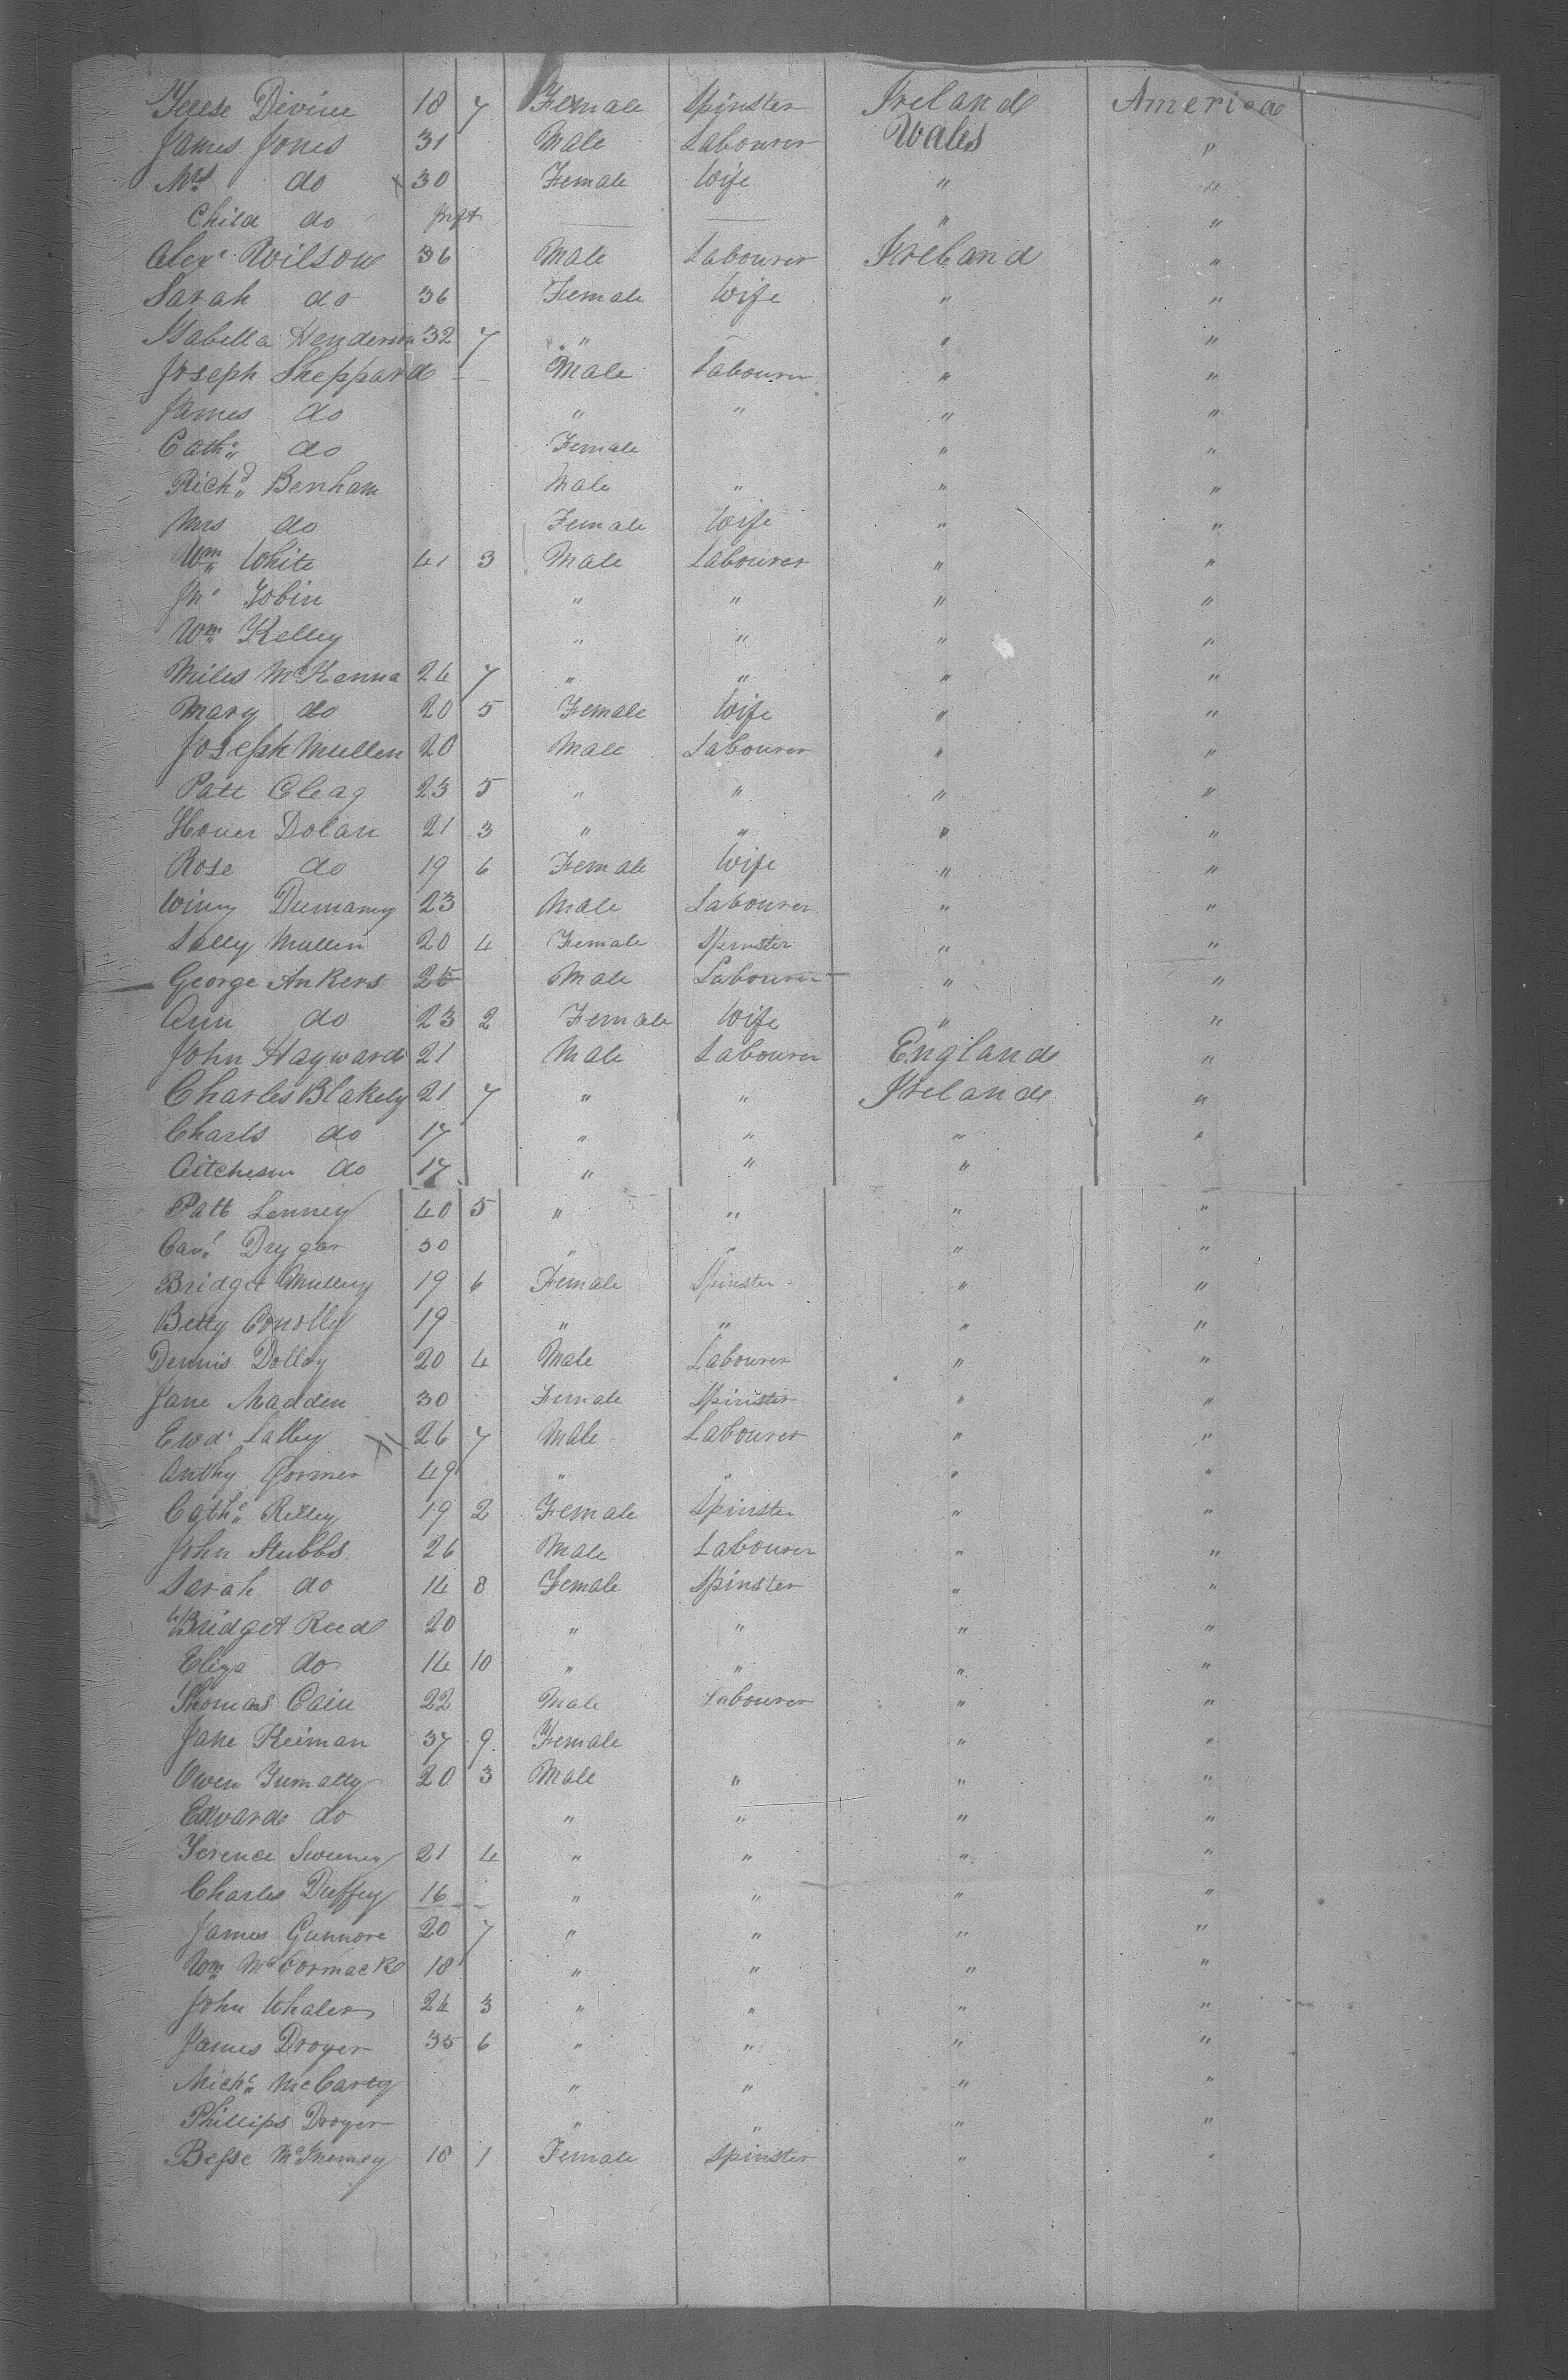 Terese Divine 18 7 Female Spinster Ireland America
James Jones 31 Male Labourer Wales "
Mrs do 30 Female Wife " "
Child do Inft — — " "
Alexr Wilson 36 Male Labourer Ireland "
Sarah do 36 Female Wife " "
Isabella Henderson 32 7 " — " "
Joseph Sheppard — — Male Labourer " "
James do " " " "
Cathe do Female " "
Richd Benham Male " " "
Mrs do Female Wife " "
Wm White 41 3 Male Labourer " "
Jno Tobin " " " "
Wm Kelley " " " "
Miles McKenna 24 7 " " " "
Mary do 20 5 Female Wife " "
Joseph Mullen 20 Male Labourer " "
Patt Cleag 23 5 " " " "
Dolan 21 3 " " " "
Rose do 19 6 Female Wife " "
Winy 23 Male Labourer " "
Sally Mullen 20 4 Female Spinster " "
George Ankers 25 Male Labourer " "
Ann do 23 2 Female Wife " "
John Hayward 21 Male Labourer England "
Charles Blakely 21 7 " " Ireland "
Charls do 17 " " " "
Aitcheson do 17 " " " "
Patt Lenney 40 5 " " " "
30 " " " "
Bridget Mullery 19 6 Female Spinster " "
Betty Conolly 19 " " " "
Dennis Dolley 20 4 Male Labourer " "
Jane Madden 30 Female Spinster " "
Ewd. Lalley 26 7 Male Labourer " "
Anthy Gormer 49 " " " "
Cathe Kelley 19 2 Female Spinster " "
John Stubbs 26 Male Labourer " "
Sarah do 14 8 Female Spinster " "
Bridget Reed 20 " " " "
Eliza do 14 10 " " " "
Thomas Cain 22 Male Labourer " "
Jane Keiman 37 9 Female " "
Owen Gumalty 20 3 Male " " "
Edward do " " " "
Terence Sweeney 21 4 " " " "
Charles Duffey 16 " " " "
James Gunnore 20 7 " " " "
Wm McCormack 18 " " " "
John Whaler 24 3 " " " "
James Droyer 35 6 " " " "
Michl McCarey " " " "
Phillips Droyer " " " "
Besse McInerney 18 1 Female Spinster " "